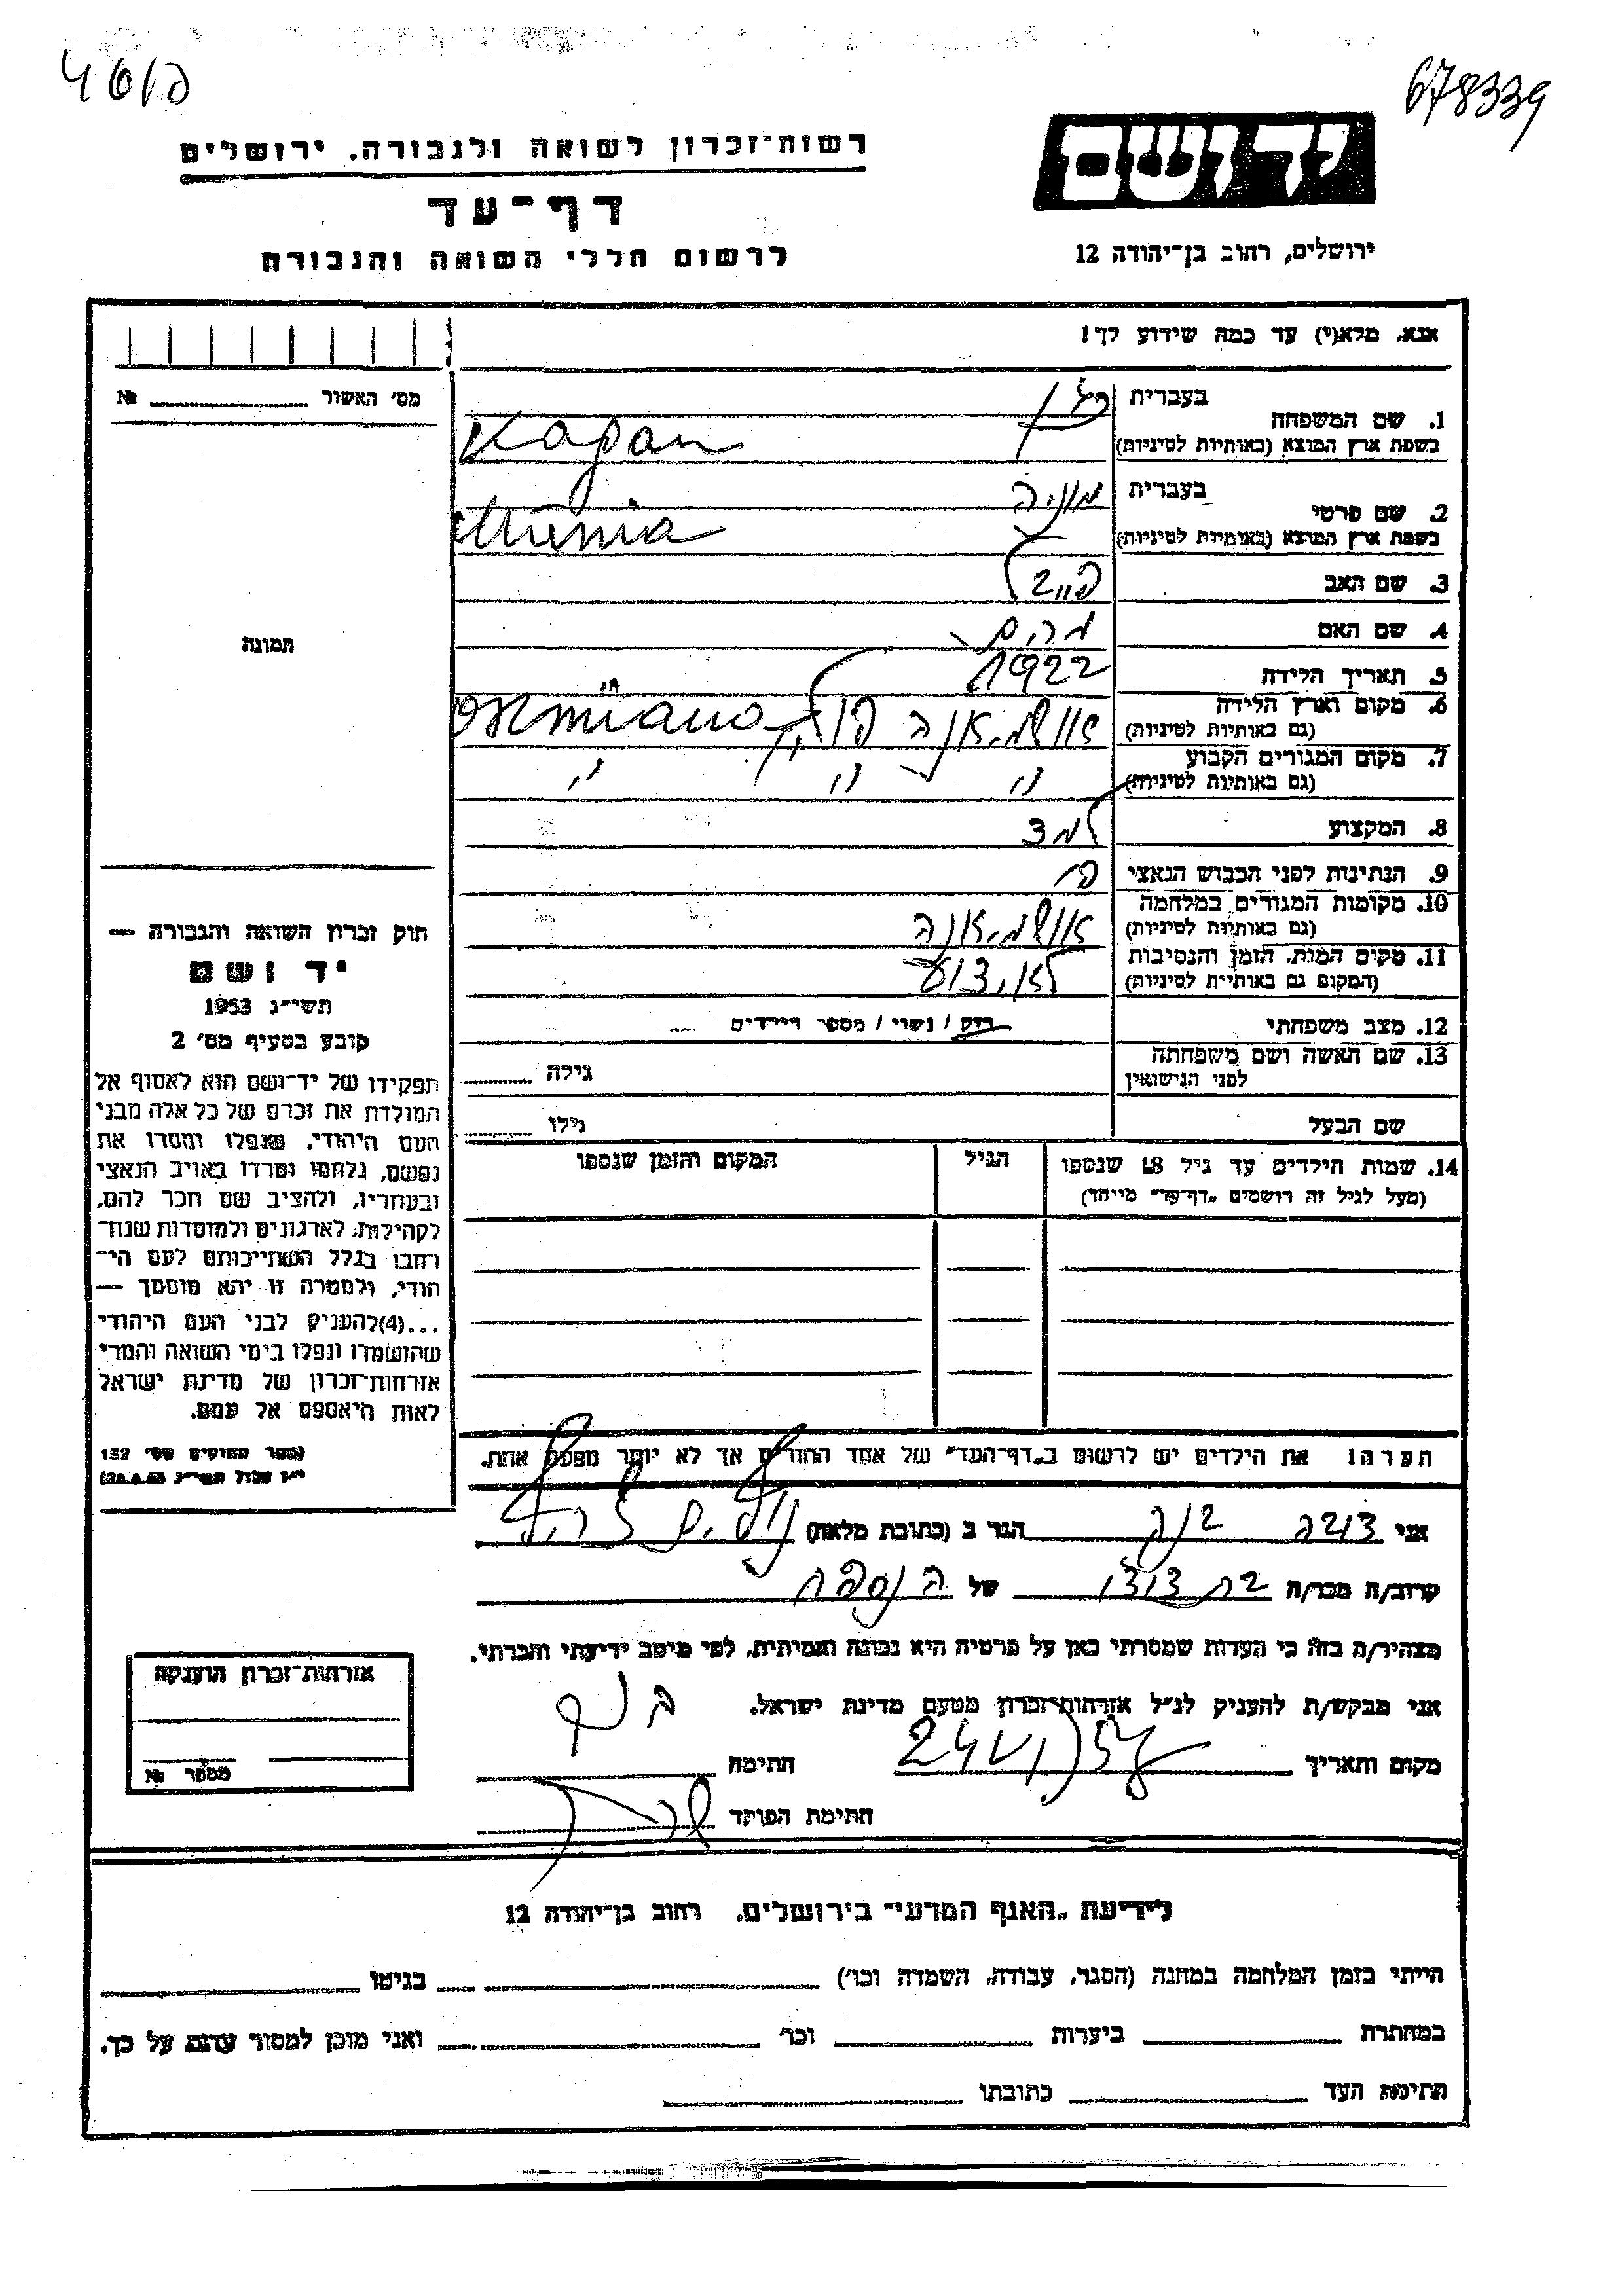 678339
יד ושם
ירושלים, רחוב בן־יהודה 12
רשות־זכרון לשואה ולגבורה, ירושלים
דף־עד
לרשום חללי השואה והגבורה
אנא, מלא(י) עד כמה שידוע לך!
1. שם המשפחה בעברית כגן
בשפת ארץ המוצא (באותיות לטיניות) Kagan
2. שם פרטי בעברית מוניה
בשפת ארץ המוצא (באותיות לטיניות) Munia
3. שם האב
4. שם האם מרים
5. תאריך הלידה 1922
6. מקום וארץ הלידה אושמיאנה פולין Osmiana
(גם באותיות לטיניות)
7. מקום המגורים הקבוע " " "
(גם באותיות לטיניות)
8. המקצוע
9. הנתינות לפני הכבוש הנאצי פו'
10. מקומות המגורים במלחמה אושמיאנה
(גם באותיות לטיניות)
11. מקום המות, הזמן והנסיבות לא ידוע
(המקום גם באותיות לטיניות)
12. מצב משפחתי רוק / נשוי / מספר הילדים
13. שם האשה ושם משפחתה
לפני הנישואין גילה
שם הבעל גילו
14. שמות הילדים עד גיל 18 שנספו הגיל המקום והזמן שנספו
(מעל לגיל זה רושמים „דף־עד” מיוחד)
הערה! את הילדים יש לרשום ב„דף־העד” של אחד ההורים אך לא יותר מפעם אחת.
מס' האשור №
תמונה
חוק זכרון השואה והגבורה —
יד ושם
תשי״ג 1953
קובע בסעיף מס' 2
תפקידו של יד־ושם הוא לאסוף אל
המולדת את זכרם של כל אלה מבני
העם היהודי, שנפלו ומסרו את
נפשם, נלחמו ומרדו באויב הנאצי
ובעוזריו, ולהציב שם וזכר להם,
לקהילות, לארגונים ולמוסדות שנח־
רבו בגלל השתייכותם לעם הי־
הודי, ולמטרה זו יהא מוסמך —
...(4) להעניק לבני העם היהודי
שהושמדו ונפלו בימי השואה והמרי
אזרחות־זכרון של מדינת ישראל
לאות היאספם אל עמם.
(ספר החוקים מס' 132
אני הגר ב (כתובת מלאה)
קרוב/ה מכר/ה בת דודו של הנספה
מצהיר/ה בזה כי העדות שמסרתי כאן על פרטיה היא נכונה ואמיתית, לפי מיטב ידיעתי והכרתי.
אני מבקש/ת להעניק לנ״ל אזרחות־זכרון מטעם מדינת ישראל.
מקום ותאריך חתימה
חתימת הפוקד
אזרחות־זכרון הוענקה
מספר №
לידיעת „האגף המדעי” בירושלים, רחוב בן־יהודה 12
הייתי בזמן המלחמה במחנה (הסגר, עבודה, השמדה וכו') בגיטו
במחתרת ביערות וכו' ואני מוכן למסור עדות על כך.
חתימת העד כתובתו